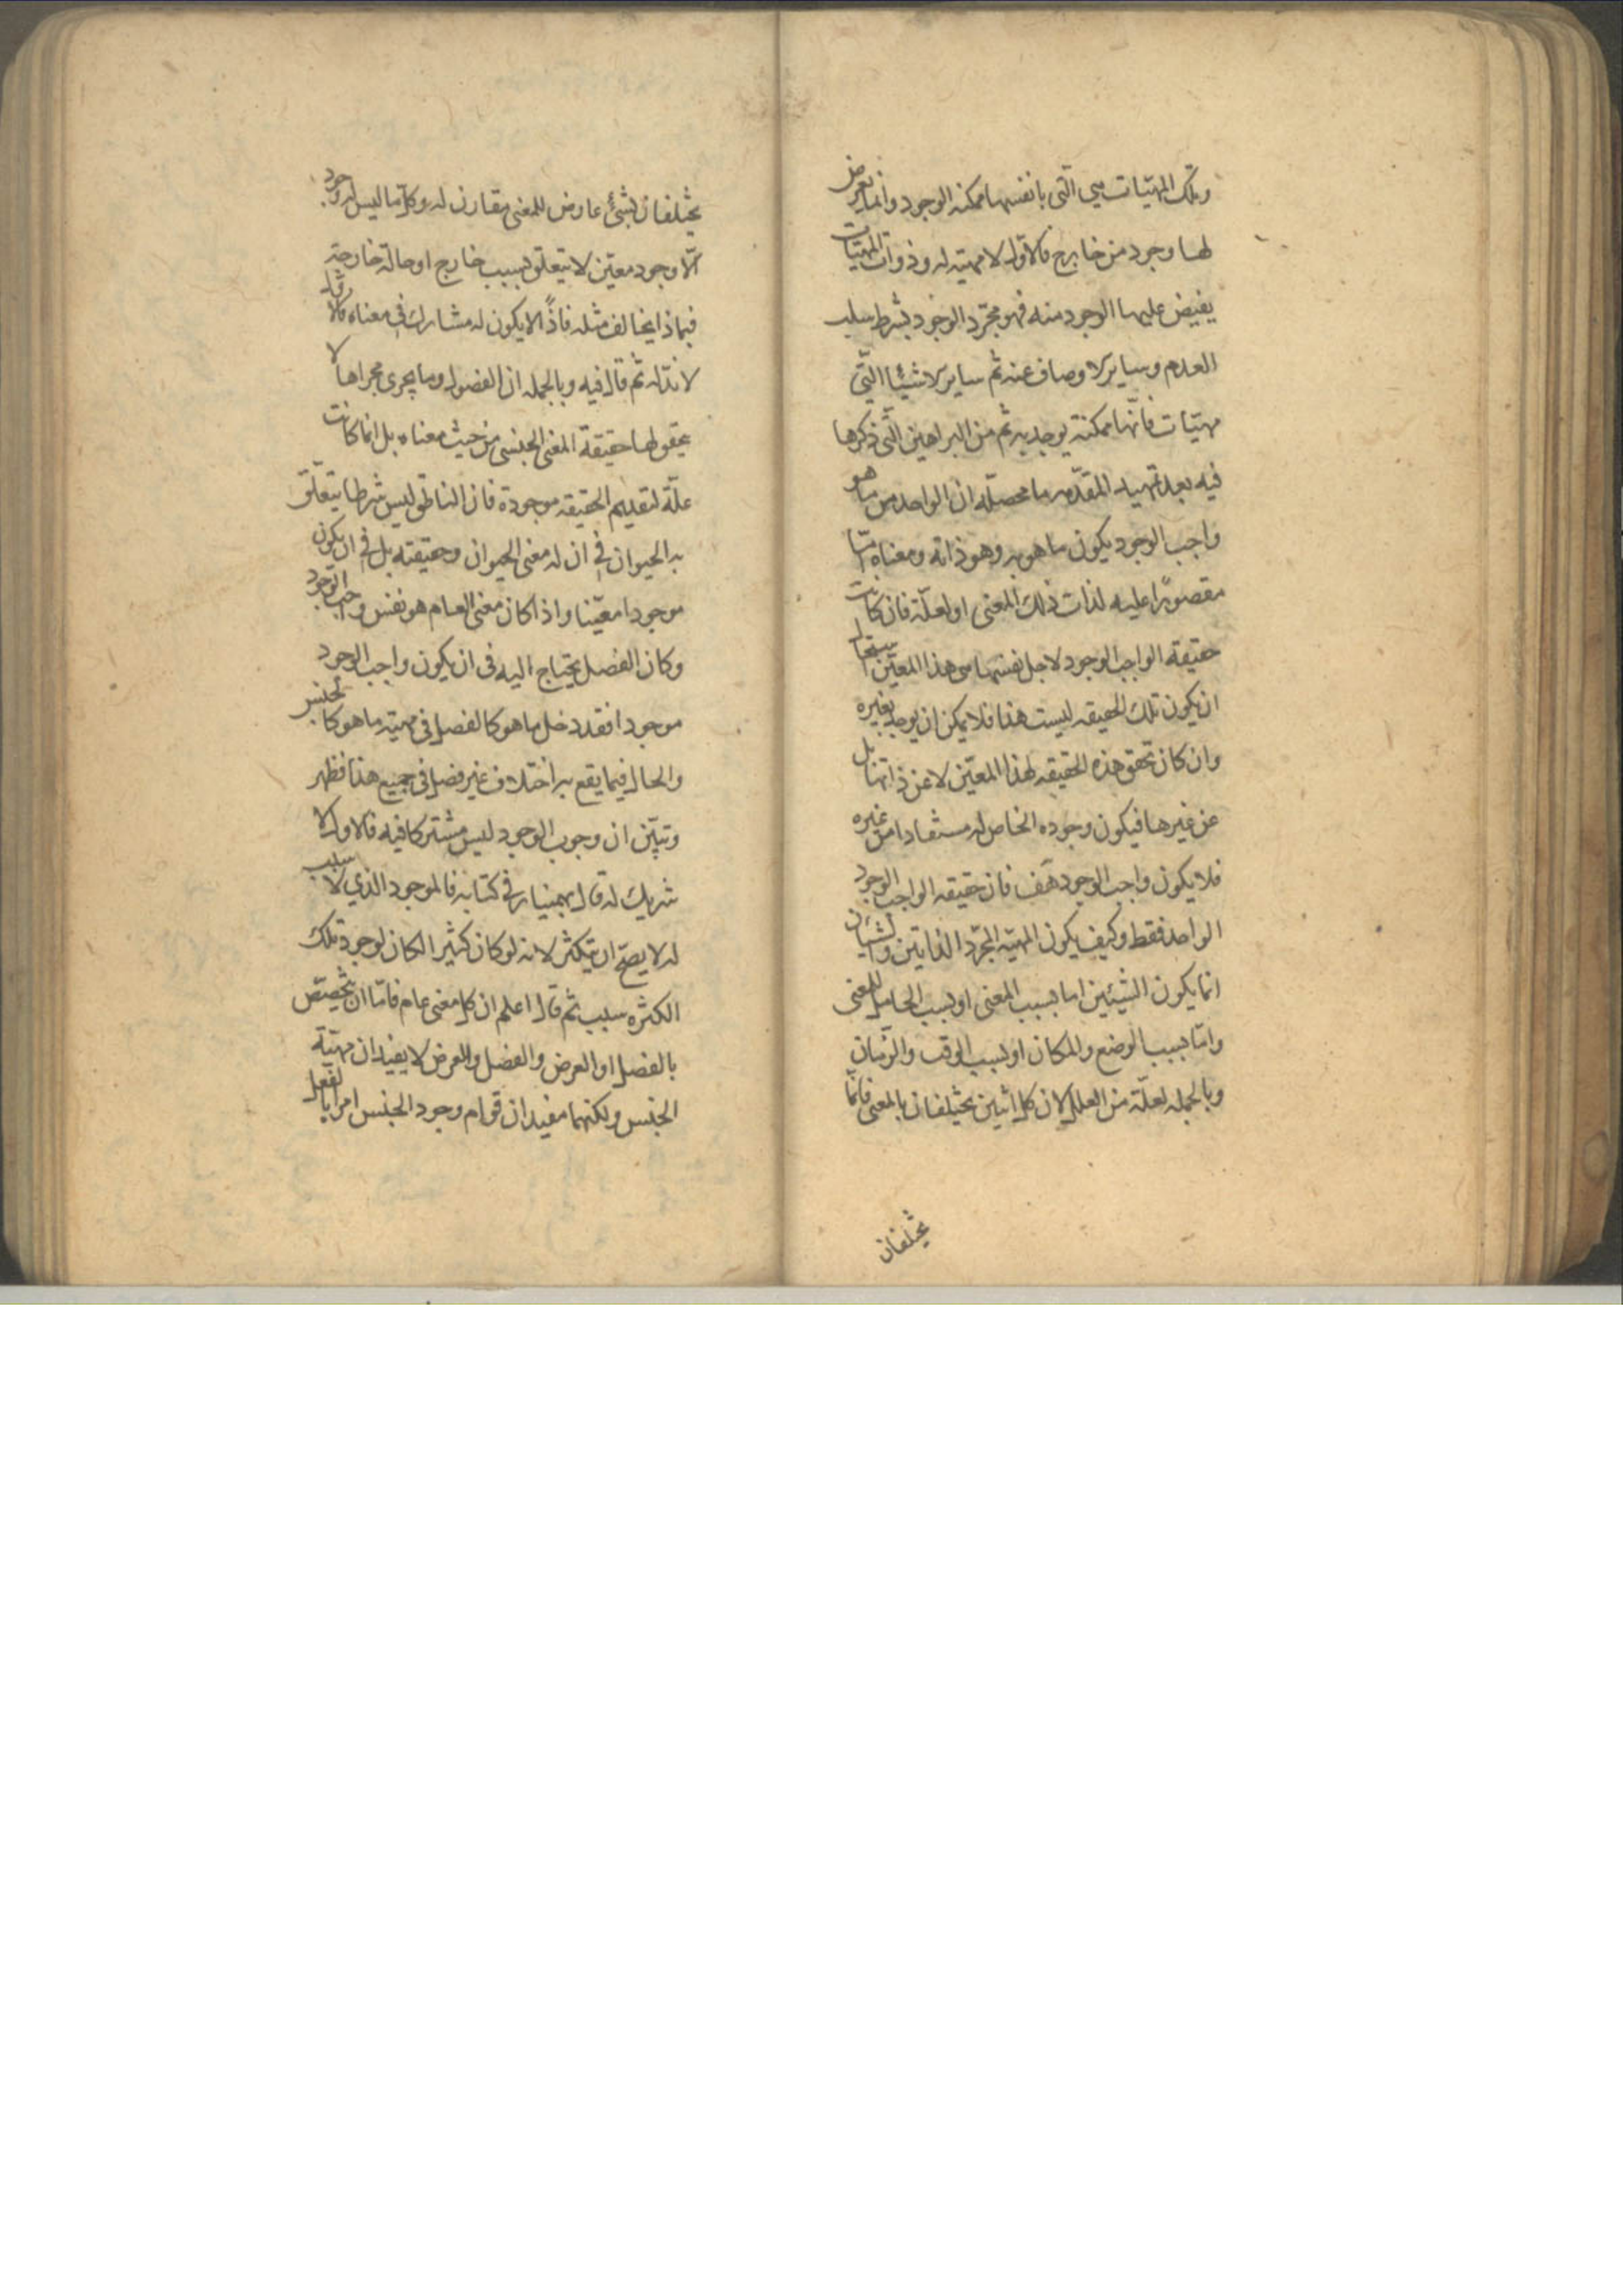 وتلك المهيّات هي الّتي بانفسها ممكنه الوجود وانما يعرض
لها وجود من خارج فالاوّل لا مهيّه له وذوات المهيّات
يفيض عليها الوجود منه فهو مجرّد الوجود بشرط سلب
العدم وساير الاوصاف عنه ثم ساير الاشيئا الّتي
مهيّات فانّها ممكنة يوجد به ثم من البراهين الّتي ذكرها
فيه بعد تمهيد المقدّمه ما محصّله ان الواحد من ما هو
واجب الوجود يكون ما هو به وهو ذاته ومعناه امّا
مقصورًا عليه لذات ذلك المعنى او لعلّة فان كانت
حقيقة الواجب الوجود لاجل نفسها هى هذا المعيّن استحال
ان يكون تلك الحقيقه ليست هذا فلا يمكن ان يوجد بغيره
وان كان تحقق هذه الحقيقه لهذا المعيّن لا عن ذاتها بل
عن غيرها فيكون وجوده الخاص له مستفادا من غيره
فلا يكون واجب الوجود هف فان حقيقه الواجب الوجود
الواحد فقط وكيف يكون المهيّه المجرّد الذاتين والشيئان
انما يكون الشيئين اما بسبب المعنى او بسبب الحامل للمعنى
وامّا بسبب الوضع والمكان او بسبب الوقت والزّمان
وبالجمله لعلّة من العلل لان كل اثنين يختلفان بالمعنى فانّما
يختلفان
يختلفان بشئ عارض للمعنى مقارن له وكل ما ليس له وجود
الّا وجود معيّن لا يتعلّق بسبب خارج او حالة خارجة
فبماذا يخالف مثله فاذًا لا يكون له مشارك في معناه فالاوّل
لا ندّ له ثم قال فيه وبالجمله ان الفصول وما يجرى مجراها لا
يحقق لها حقيقة المعنى الجنسى من حيث معناه بل انما كانت
علّة لتقديم الحقيقه موجودة فان الناطق ليس شرطا يتعلّق
به الحيوان في ان له معنى الحيوان وحقيقته بل في ان يكون
موجودا معيّنا واذا كان معنى العام هو نفس واجب الوجود
وكان الفصل يحتاج اليه فى ان يكون واجب الوجود
موجودا فقد دخل ما هو كالفصل فى مهيّه ما هو كالجنس
والحال فيما يقع به اختلاف غير فصل فى جميع هذا فظهر
وتبيّن ان وجوب الوجود ليس مشتركا فيه فالاول لا
شريك له قال بهمنيار فى كتابه فالموجود الذي لا سبب
له لا يصحّ ان يتكثّر لانه لو كان كثيرا لكان لوجود تلك
الكثره سبب ثم قال اعلم ان كل معنى عام فامّا ان يتخصّص
بالفصل او العرض والفصل والعرض لا يفيدان مهيّة
الجنس ولكنهما مفيدان قوام وجود الجنس امرا بالفعل